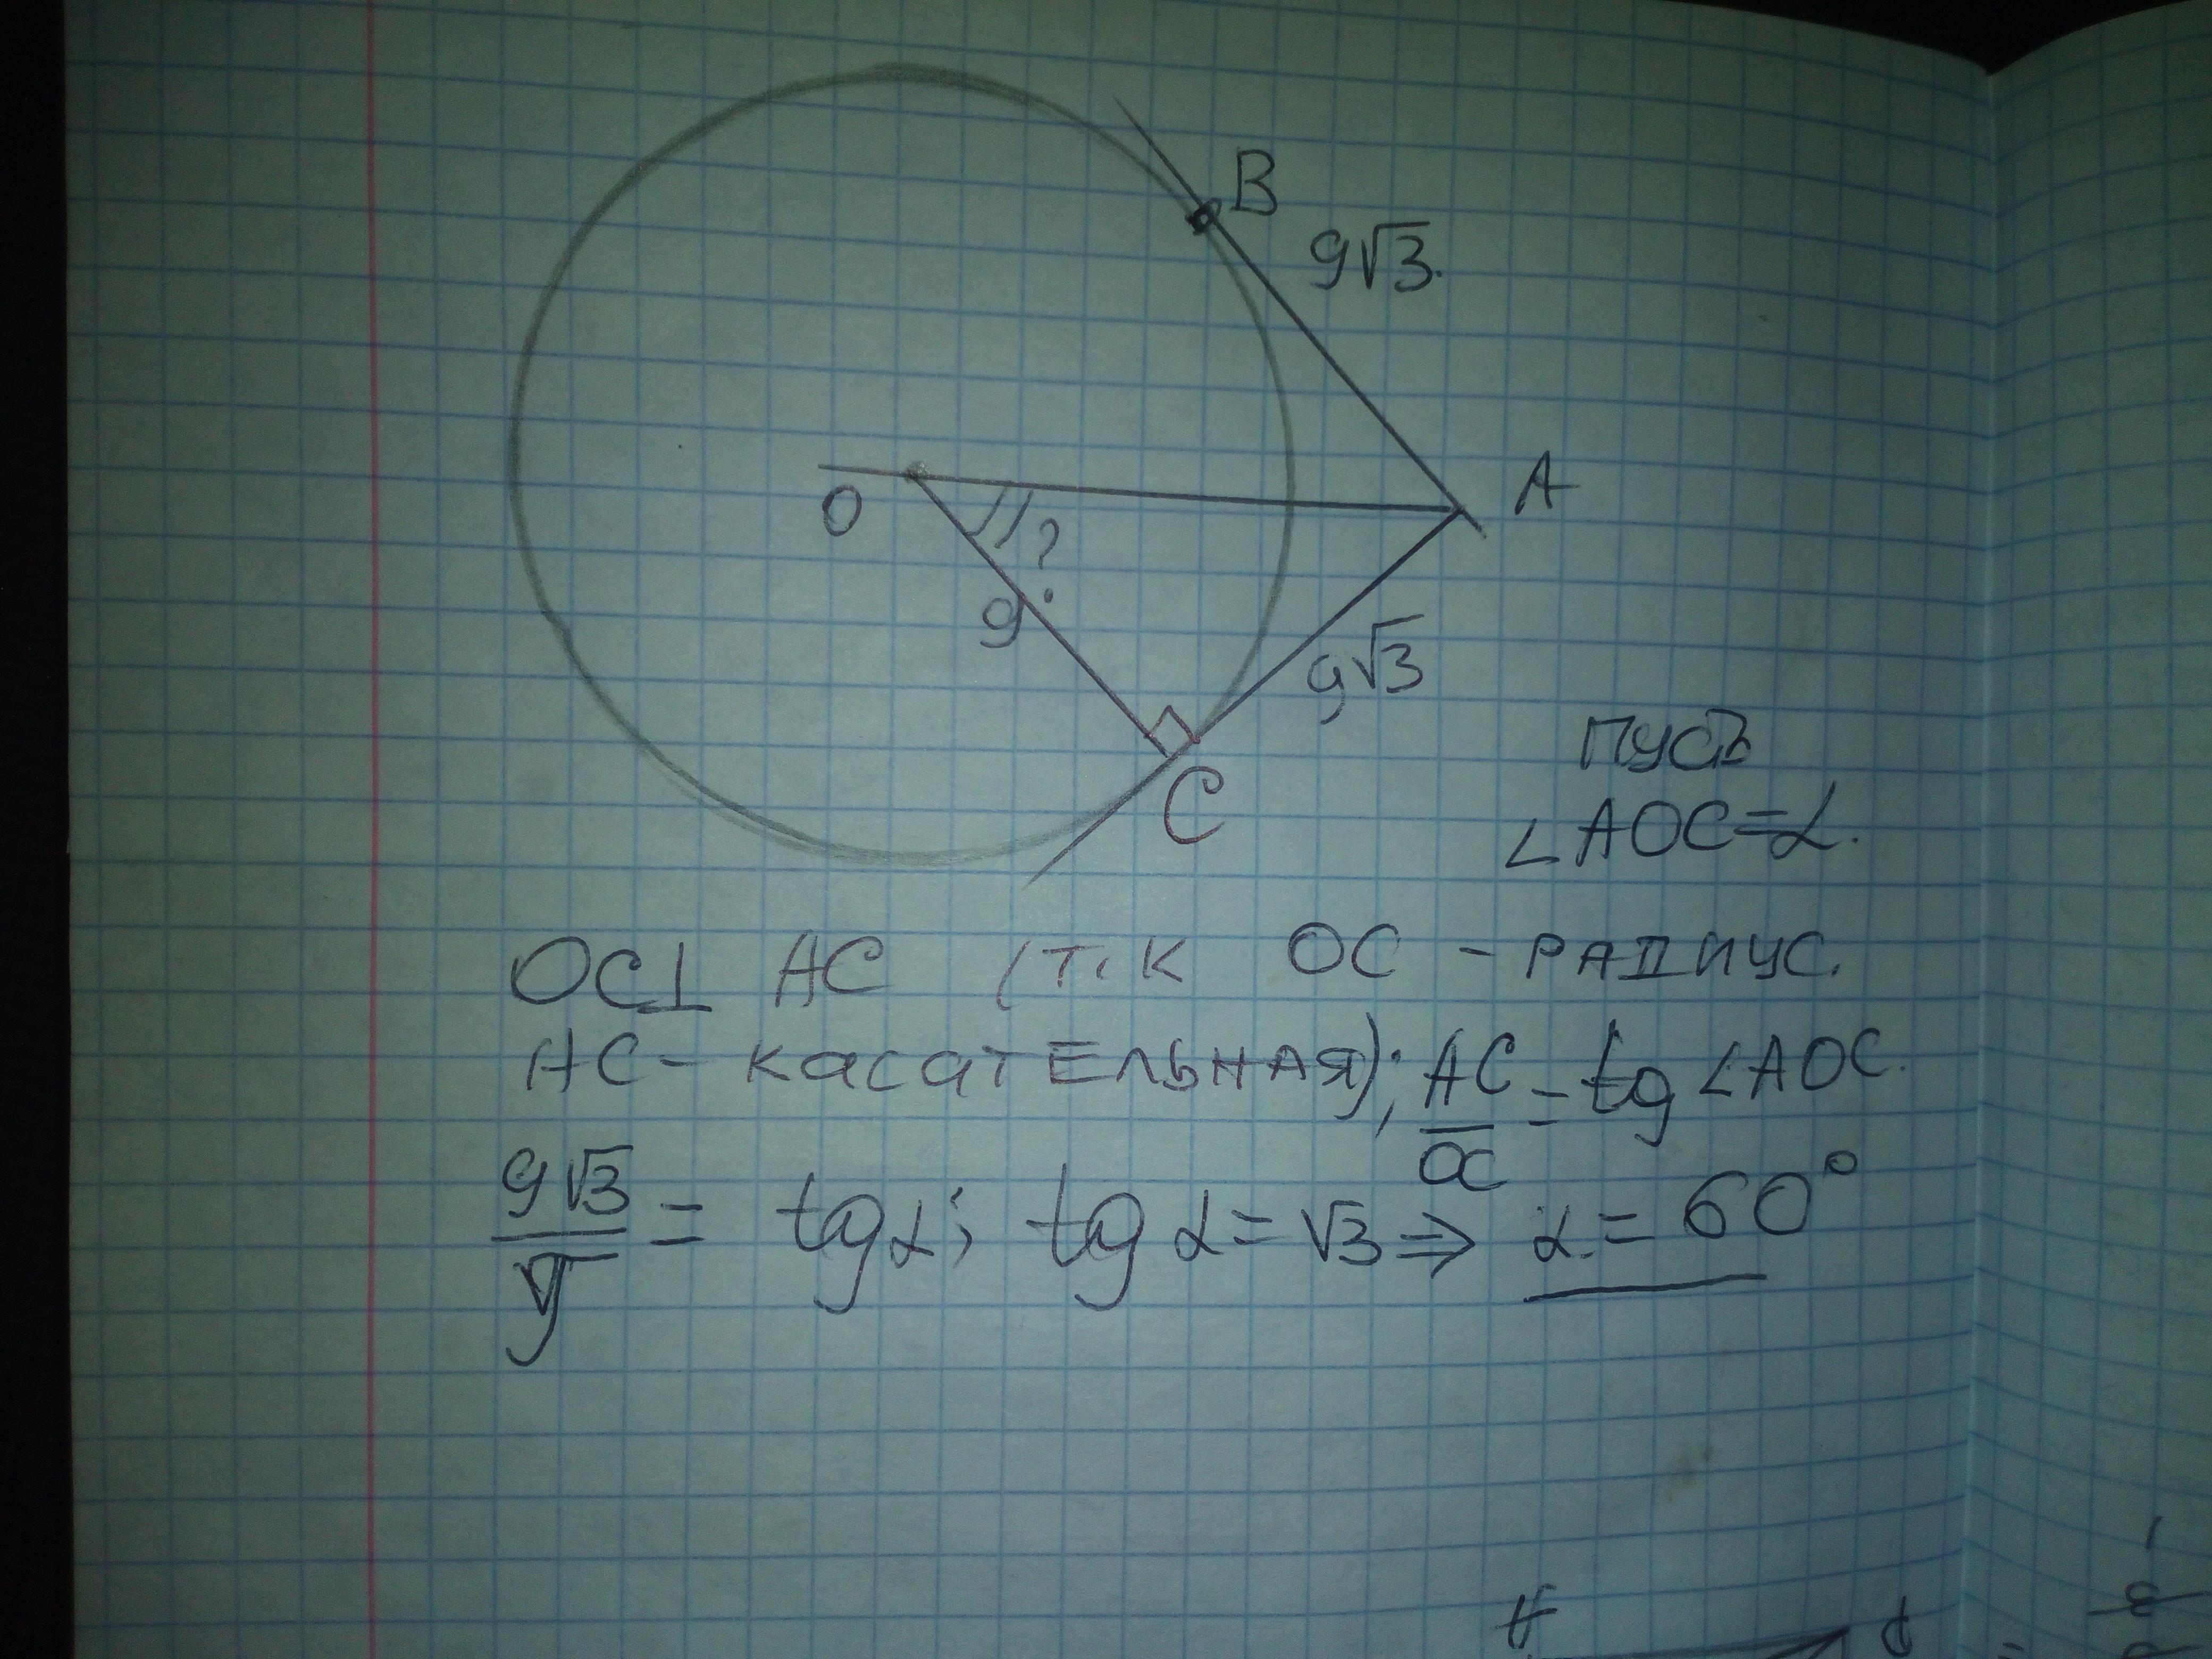 B
9√3.
O
A
?
9
9√3
C
ПУСЬ
∠AOC=α.
OC⊥ AC (Т.К OC - РАДИУС.
AC- КАСАТЕЛЬНАЯ); AC/OC = tg ∠AOC.
9√3/9 = tgα; tg α = √3 ⇒ α = 60°